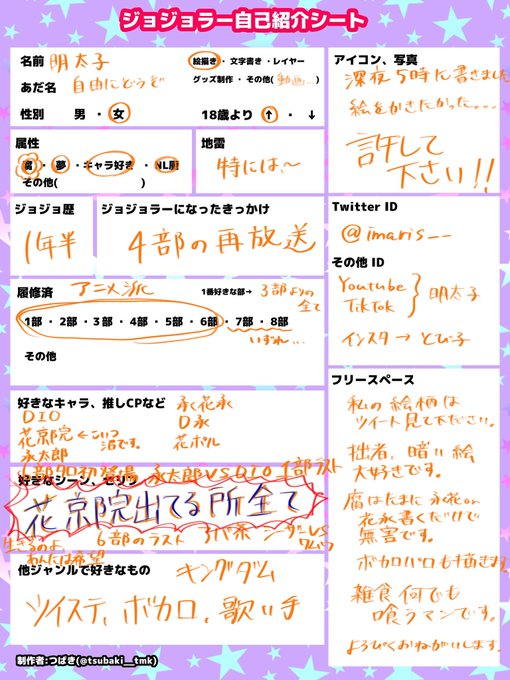 ジョジョラー自己紹介シート
名前 明太子
あだ名 自由にどうぞ
性別 男・女
絵描き・文字書き・レイヤー
グッズ制作・その他(動画...)
18歳より ↑・↓
属性
腐・夢・キャラ好き・NL厨
その他( )
地雷
特には、〜
ジョジョ歴
1年半
ジョジョラーになったきっかけ
4部の再放送
履修済 アニメ派
1番好きな部→ 3部よりの全て
1部・2部・3部・4部・5部・6部・7部・8部
いずれ...
その他
好きなキャラ、推しCPなど
DIO
花京院 ←こいつ沼です。
承太郎
承花承
D承
花ポル
好きなシーン、セリフ
承太郎VSDIO 1部ラスト
花京院出てる所全て
6部のラスト
他ジャンルで好きなもの
キングダム
ツイステ、ボカロ、歌い手
制作者:つばき(@tsubaki__tmk)
アイコン、写真
深夜5時に書きました
絵をかきたかった....
許して
下さい!!
Twitter ID
@imaris__
その他 ID
Youtube
TikTok
明太子
インスタ → とび子
フリースペース
私の絵柄は
ツイート見て下ださい。
拙者、暗い絵
大好きです。
腐はたまに承花or
花承書くだけで
無害です。
ボカロパロも描きます。
雑食何でも
喰うマンです。
よろぴくおねがいします。